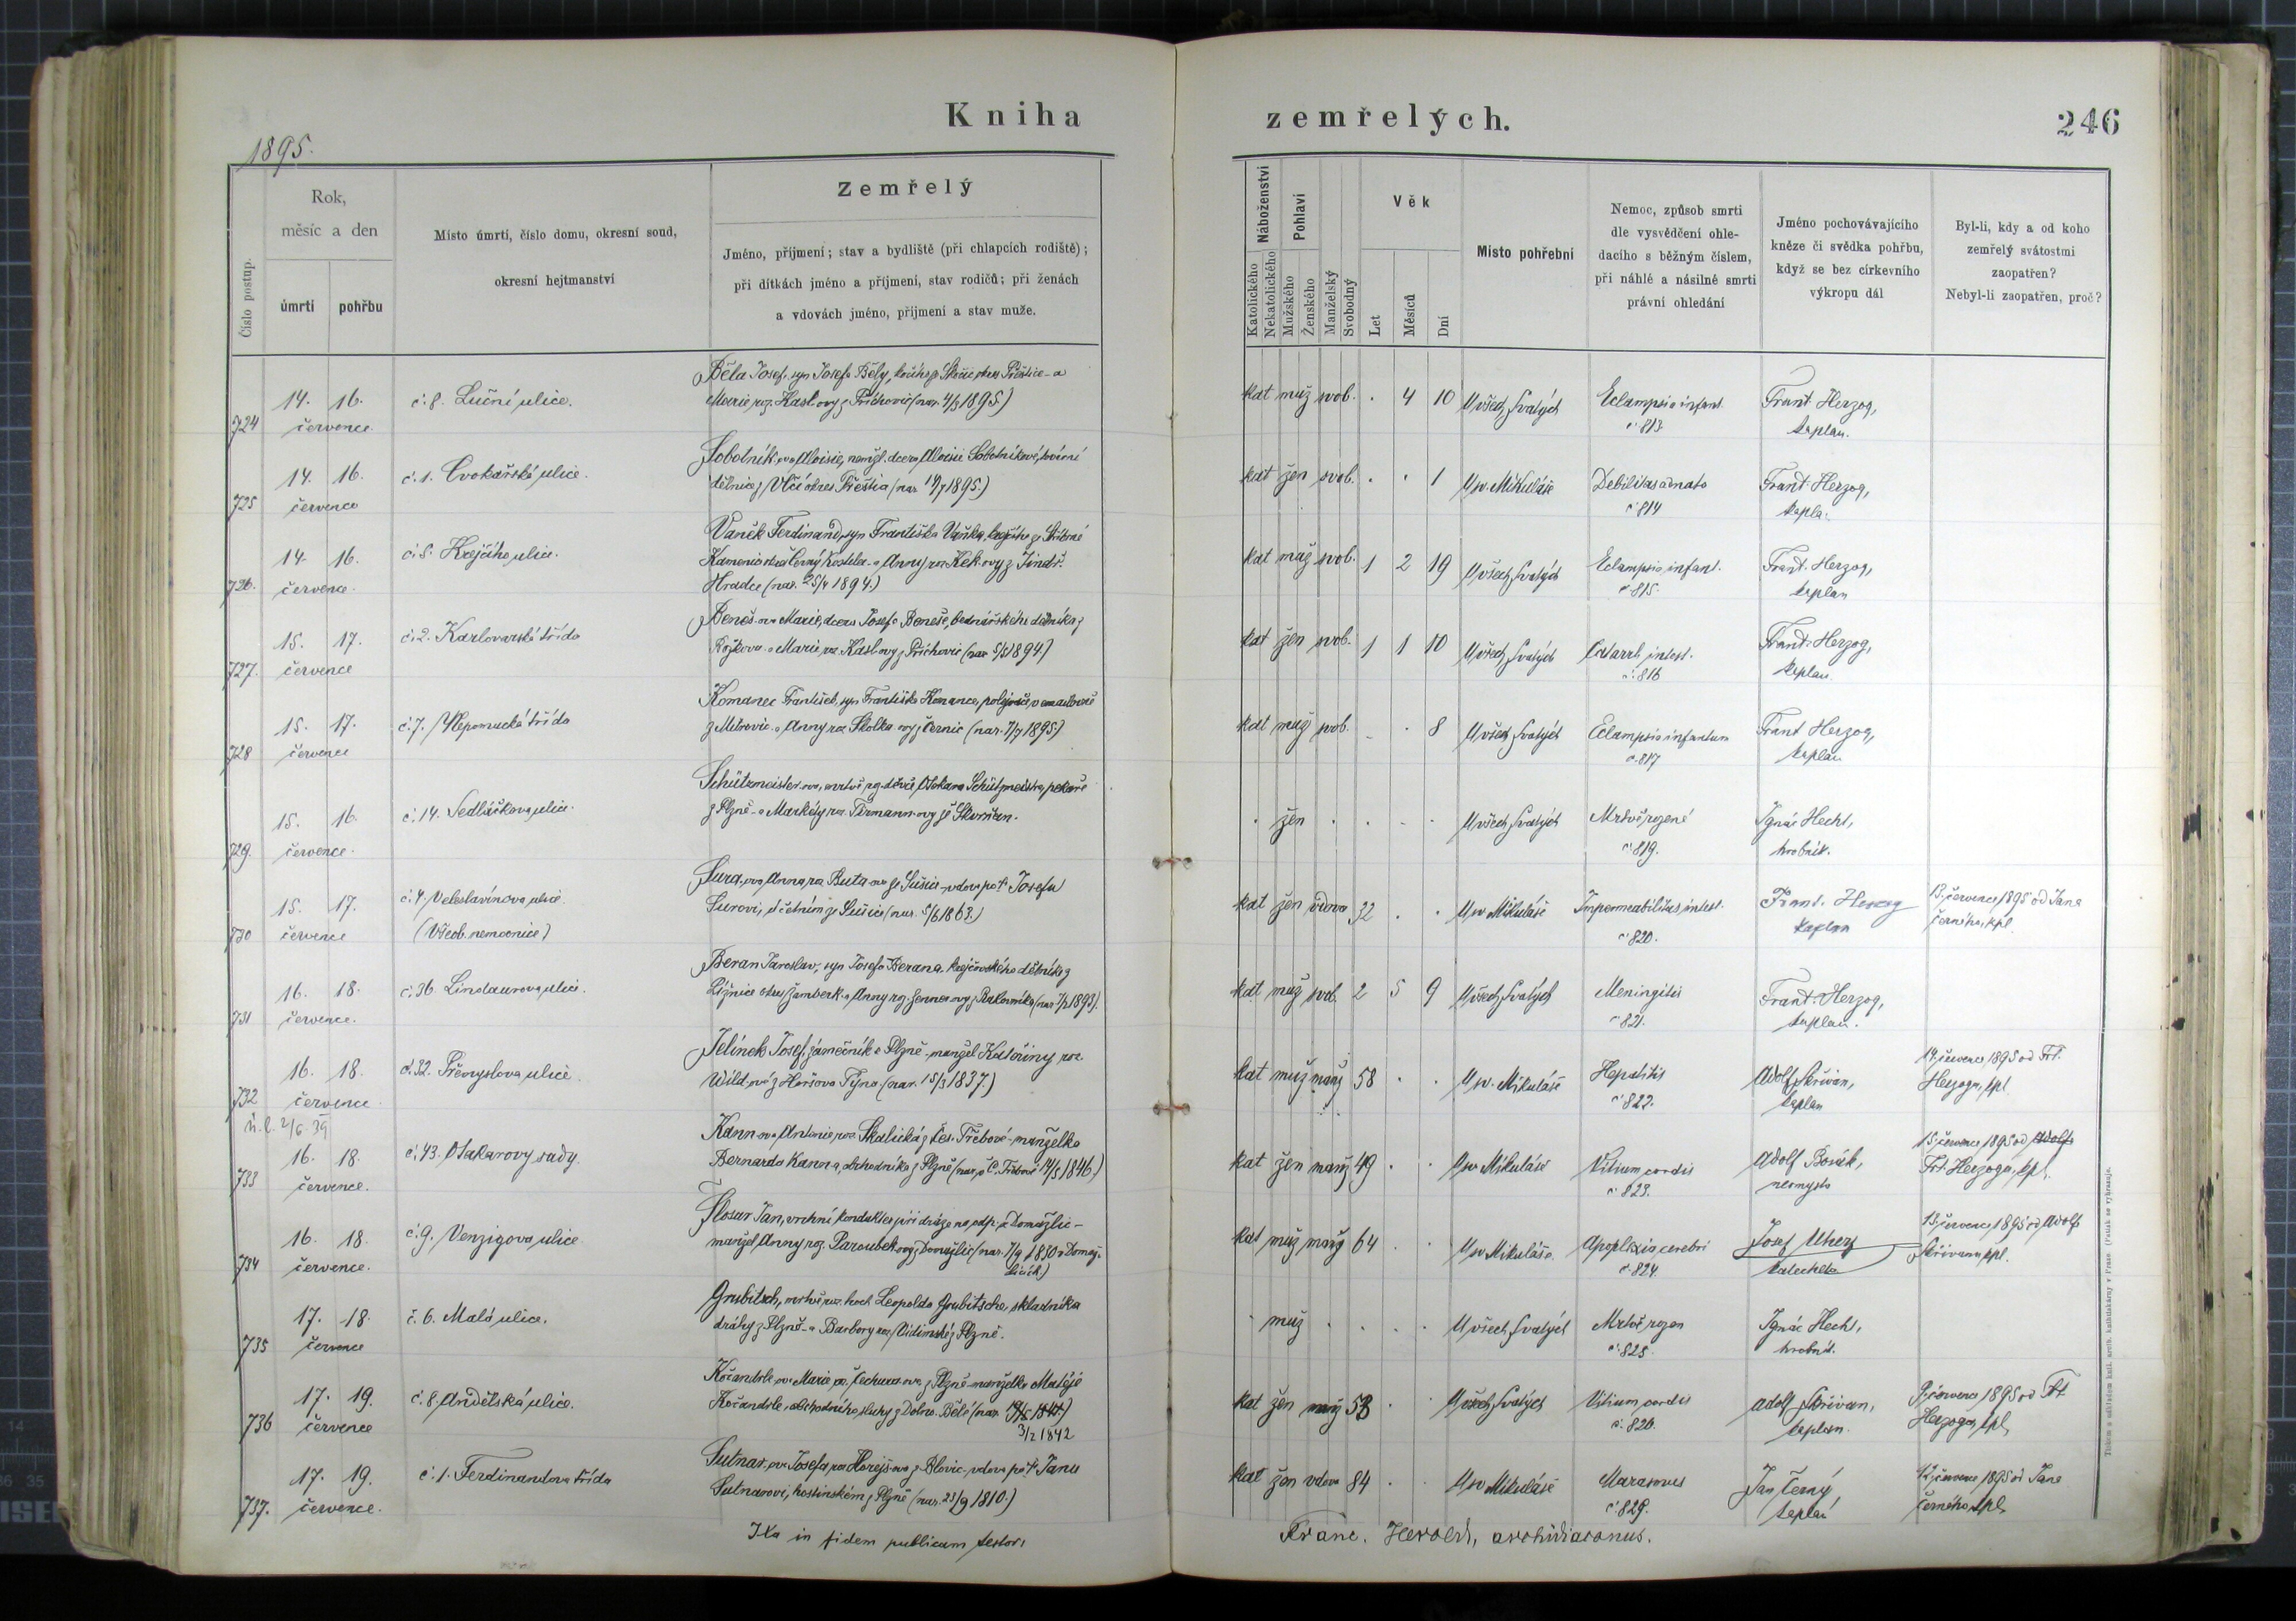 Kniha zemřelých.
246
1895.
Číslo postup.
Rok,
měsíc a den
úmrtí
pohřbu
Místo úmrtí, číslo domu, okresní soud,
okresní hejtmanství
Zemřelý
Jméno, příjmení; stav a bydliště (při chlapcích rodiště);
při dítkách jméno a příjmení, stav rodičů; při ženách
a vdovách jméno, příjmení a stav muže.
Náboženství
Katolického
Nekatolického
Pohlaví
Mužského
Ženského
Manželský
Svobodný
Věk
Let
Měsíců
Dní
Místo pohřební
Nemoc, způsob smrti
dle vysvědčení ohle-
dacího s běžným číslem,
při náhlé a násilné smrti
právní ohledání
Jméno pochovávajícího
kněze či svědka pohřbu,
když se bez církevního
výkropu dál
Byl-li, kdy a od koho
zemřelý svátostmi
zaopatřen?
Nebyl-li zaopatřen, proč?
724
14. 16.
července
č. 8. Luční ulice.
Běla Josef, syn Josefa Běly, z okres Přeštice - a
Marie roz. Kaslovy z Příchovic (nar. 4/3 1895)
kat muž svob. . 4 10 U všech Svatých
Eclampsia infant.
č. 813.
Frant. Herzog,
kaplan.
725
14. 16.
července
č. 1. Cvokařská ulice.
Sobotník-ova Aloisie, nemžl. dcera Aloisie Sobotníkové, tovární
dělnice z Vlčí okres Přeštic (nar. 1895.)
kat žen svob. . . 1 U sv. Mikuláše
Debilitas adnata
č. 814
Frant. Herzog,
kapla.
726.
14. 16.
července.
č. 5. Krejčího ulice.
Vaněk Ferdinand, syn Františka Vaňka, z Stříbrné
Kamenice okres Černý Kostelec a Anny roz. Kekovy z Jindř.
Hradce (nar. 25/4 1894.)
kat muž svob. 1 2 19 U všech Svatých
Eclampsia infant.
č. 815.
Frant. Herzog,
kaplan
727.
15. 17.
července
č. 2. Karlovarská třída
Beneš-ova Marie, dcera Josefa Beneše, bednářského dělníka z
a Marie roz. Kaslovy z Příchovic (nar. 5/6 1894)
kat žen svob. 1 1 10 U všech Svatých
Catarrh. intest.
č. 816
Frant. Herzog,
kaplan.
728
15. 17.
července
č. 7. Nepomucká třída
Komanec František, syn Františka Komance,
z Mitrovic a Anny roz. Skolkovy z Černic (nar. 7/7 1895)
kat muž svob. . . 8 U všech Svatých
Eclampsia infantum
č. 817
Frant Herzog,
kaplan
729.
15. 16.
července.
č. 14. Sedláčkova ulice.
Schützmeister-ova, mrtvě roz. děvče Otokara Schützmeistra, pekaře
z Plzně - a Markéty roz. Firmannovy ze Skvrňan.
. žen . . . . U všech Svatých
Mrtvě rozené
č. 819.
Ignác Hecht,
hrobník.
730
15. 17.
července
č. 4. Veleslavínova ulice.
(Všeob. nemocnice)
Sura-ova Anna roz. Buta-ova ze Sušice, vdova po † Josefu
Surovi, z Sušice (nar. 5/6 1863.)
kat žen vdova 32 . . U sv Mikuláše
Impermeabilitas intest.
č. 820.
Frant. Herzog
kaplan
13. července 1895 od Jana
Černého, kpl.
731
16. 18.
července.
č. 36. Lindaurova ulice.
Beran Jaroslav, syn Josefa Berana, krejčovského dělníka z
Líšnice okres Žamberk a Anny roz. Jennerovy z Rakovníka (nar. 7/2 1893).
kat muž svob. 2 5 9 U všech Svatých
Meningitis
č. 821.
Frant. Herzog,
kaplan.
732
16. 18.
července
č. 32. Přemyslova ulice.
Jelínek Josef, zámečník z Plzně - manžel Kateřiny roz.
Wild-ové z Horšova Týna (nar. 15/3 1837.)
kat muž manž 58 . . U sv. Mikuláše
Hepatitis
č. 822.
Adolf Skřivan,
kaplan
14. července 1895 od Frt.
Herzoga, kpl.
733
16. 18.
července.
č. 43. Otakarovy sady.
Kann-ova Antonie roz. Skalická z Čes. Třebové - manželka
Bernarda Kanna, obchodníka z Plzně (nar. v Č. Třebové 14/5 1846.)
kat žen manž 49 . . U sv Mikuláše
Vitium cordis
č. 823.
Adolf
15. července 1895 od Adolfa
Frt. Herzoga, kpl.
734
16. 18.
července.
č. 9. Venzigova ulice.
Flosar Jan, vrchní kondukter při dráze na odp. z Domažlic -
manžel Anny roz. Paroubekovy z Domažlic (nar. 7/9 1830 v Domaž-
licích)
kat muž manž 64 . U sv Mikuláše
Apoplexia cerebri
č. 824.
Josef Uherz
katecheta
15. července 1895 od Adolfa
Skřivana, kpl.
735
17. 18.
července
č. 6. Malá ulice.
Grubitsch, mrtvě roz. hoch Leopolda Grubitsche, skladníka
dráhy z Plzně - a Barbory roz. Vidimské z Plzně.
. muž . . . . U všech Svatých
Mrtvě rozen
č. 825.
Ignác Hecht,
hrobník.
736
17. 19.
července
č. 8. Andělská ulice.
Kočandrle-ova Marie roz. Čechura-ova z Plzně manželka Matěje
Kočandrle, obchodního sluhy z Dolní Bělé (nar.
3/2 1842
kat žen manž 53 . . U všech Svatých
Vitium cordis
č. 826.
Adolf Skřivan,
kaplan.
9. července 1895 od Frt.
Herzoga, kpl.
737.
17. 19.
července.
č. 1. Ferdinandova třída
Sutnar-ova Josefa roz. Horejš-ova z Blovic, vdova po † Janu
Sutnarovi, hostinském z Plzně (nar. 23/9 1810.)
kat žen vdova 84 . . U sv Mikuláše
Marasmus
č. 829.
Jan Černý,
kaplan
12. července 1895 od Jana
Černého kpl.
Ita in fidem publicam testor:
Franc. Herold, archidiaconus.